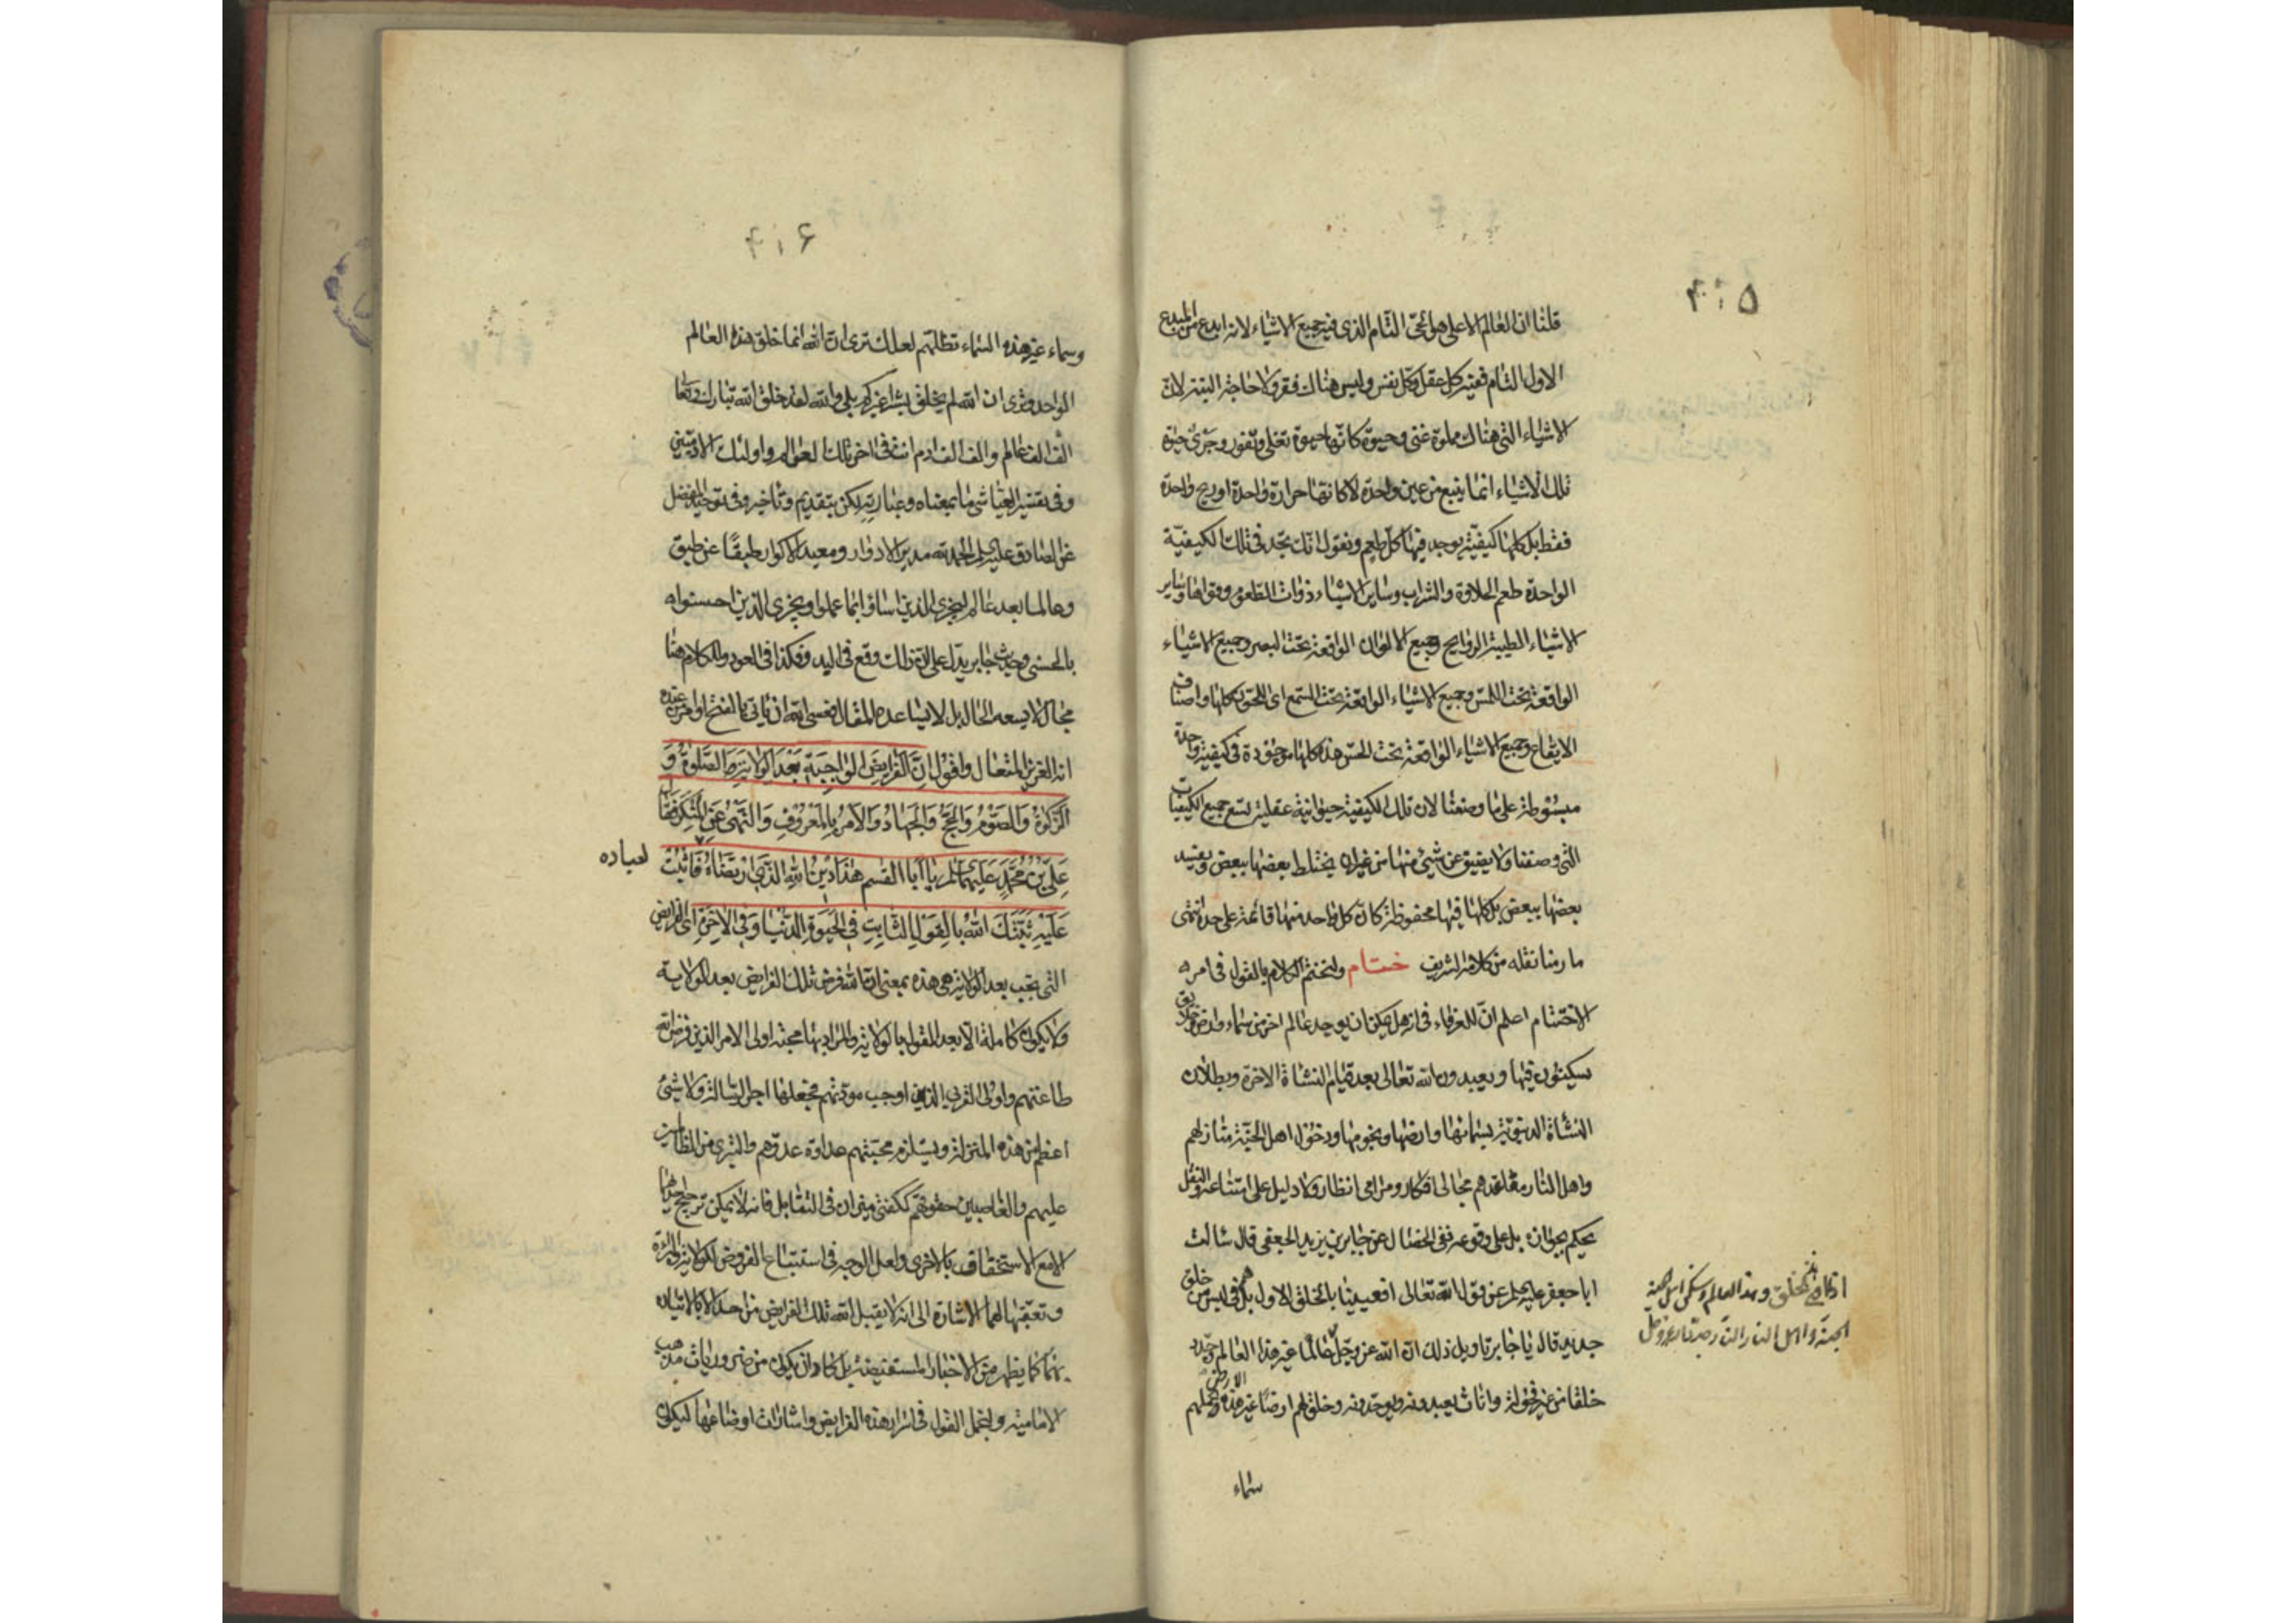 ۴۱۵
قلنا ان العالم الاعلى هو الحى التام الذى فيه جميع الاشياء لانه ابدع من المبدع
الاول التام ففيه كل عقل وكل نفس وليس هناك فقر ولا حاجة البتة لان
الاشياء التى هناك مملوة غنى وحيوة كانها حيوة تغلى وتفور وجرى حيوة
تلك الاشياء انما ينبع من عين واحدة لا كانها حرارة واحدة او ريح واحدة
فقط بل كلها كيفية يوجد فيها كل طعم ونقول انك تجد فى تلك الكيفية
الواحدة طعم الحلاوة والشراب وساير الاشياء ذوات الطعوم وقواها وساير
الاشياء الطيبة الروايح وجميع الالوان الواقعة تحت البصر وجميع الاشياء
الواقعة تحت اللمس وجميع الاشياء الواقعة تحت السمع اى اللحون كلها واصناف
الايقاع وجميع الاشياء الواقعة تحت الحس هذه كلها موجودة فى كيفية واحدة
مبسوطة على ما وصفنا لان تلك الكيفية حيوانية عقلية تسع جميع الكيفيات
التى وصفنا ولا يضيق عن شىء منها من غير ان يختلط بعضها ببعض ويفسد
بعضها ببعض بل كلها فيها محفوظة كان كل واحد منها قائمة على حدة انتهى
ما رمنا نقله من كلامه الشريف ختام ولنختم الكلام بالقول فى امر
الاختتام اعلم ان للعرفاء فى انه هل يمكن ان يوجد عالم اخر من سماء وارض وخلايق
يسكنون فيها ويعبدون الله تعالى بعد قيام النشاة الاخرة وبطلان
النشاة الدنيوية بسمائها وارضها ونجومها ودخول اهل الجنة منازلهم
واهل النار مقاعدهم مجالى افكار ومرامى انظار ولا دليل على امتناعه والعقل
يحكم بجوازه بل على وقوعه ففى الخصال عن جابر بن يزيد الجعفى قال سالت
ابا جعفر عليه السلم عن قول الله تعالى افعيينا بالخلق الاول بل هم فى لبس من خلق
جديد قال يا جابر تاويل ذلك ان الله عز وجل عالما غير هذا العالم وجدد
خلقا من غير فحولة واناث يعبدونه ويوحدونه وخلق لهم ارضا غير هذه الارض تحملهم
اذا افنى هذا الخلق وهذا العالم وسكن اهل الجنة
الجنة واهل النار النار جدد الله عز وجل
سماء
۴۱۶
وسماء غير هذه السماء تظلهم لعلك ترى ان الله انما خلق هذه العالم
الواحد وترى ان الله لم يخلق بشرا غيركم بلى والله لقد خلق الله تبارك وتعا
الف الف عالم والف الف ادم انت فى اخر تلك العوالم واولئك الادميين
وفى تفسير العياشى ما بمعناه وعبارته لكن بتقديم وتاخير وفى توحيد المفضل
عن الصادق عليه السلم الحمد لله مدير الادوار ومعيد الاكوار طبقا عن طبق
وعالما بعد عالم ليجزى الذين اساؤا بما عملوا ويجزى الذين احسنوا
بالحسنى وحديث جابر يدل على ان ذلك وقع فى البد وهكذا فى العود والكلام هنا
مجال لا يسعه الحال بل لا يساعده المقال فعسى الله ان ياتى بالفتح او امر من عنده
انه العزيز المتعال واقول ان الفرايض الواجبة بعد الولاية الصلوة و
الزكوة والصوم والحج والجهاد والامر بالمعروف والنهى عن المنكر فقال
على بن محمد عليهما السلم يا ابا القسم هذا دين الله الذى ارتضاه فاثبت
لعباده
عليه ثبتك الله بالقول الثابت فى الحيوة الدنيا وفى الاخرة اى الفرايض
التى يجب بعد الولاية هى هذه بمعنى ان الله فرض تلك الفرايض بعد الولاية
ولا يكون كاملة الا بعد القول بالولاية والمراد بها محبة اولى الامر الذين فرض الله
طاعتهم واولى القربى الذين اوجب مودتهم فجعلها اجر الرسالة ولا شىء
اعظم من هذه المنزلة ويستلزم محبتهم عداوة عدوهم والتبرى من الظالمين
عليهم والغاصبين حقوقهم ككفتى ميزان فى التقابل فانه لا يمكن ترجيح احدهما
الا مع الاستخفاف بالاخرى ولعل الوجه فى استتباع الفروض للولاية والبرائة
وتعقبها لهما الاشارة الى انه لا يقبل الله تلك الفرايض من احد الا بالاتيان
بهما كما يظهر من الاخبار المستفيضة بل كاد ان يكون من ضروريات مذهب
الامامية ولنجمل القول فى اسرار هذه الفرايض واشارات اوضاعها ليكون